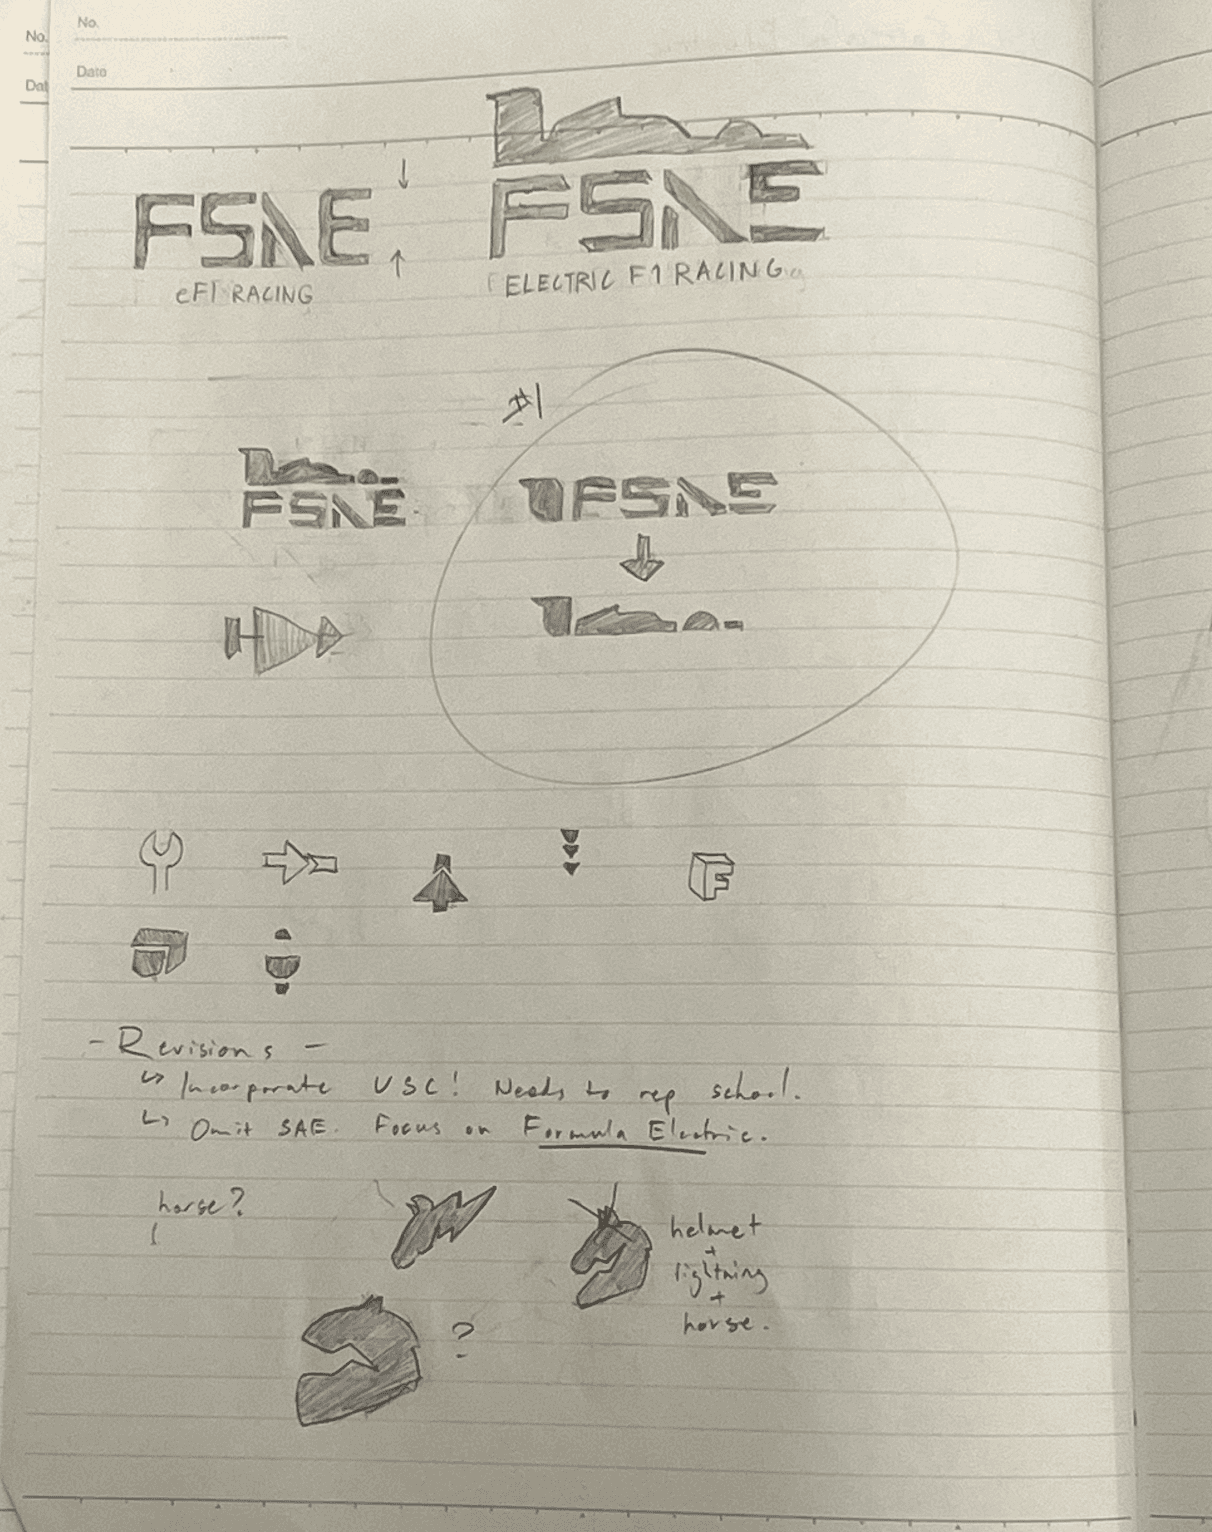 No.
No.
Date
Dat
FSAE
eF1 RACING
FSAE
ELECTRIC F1 RACING
#1
FSAE
FSAE
F
- Revisions -
↳ Incorporate USC! Needs to rep school.
↳ Omit SAE. Focus on Formula Electric.
horse?
helmet
+
lightning
+
horse.
?